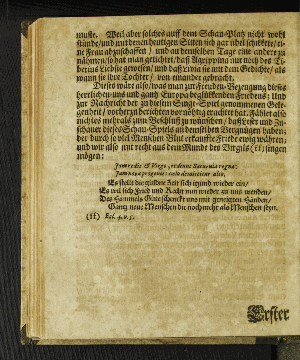 muste. Weil aber solches auff dem Schau-Platz nicht wohl
stünde/ und mit denen heutigen Sitten sich gar übel schickte/ ei-
ne Frau abzuschaffen/ und an derselben Stat eine andere zu
nähmen/ so hat man getichtet/ daß Agrippina nur noch des Ti-
berius Liebste gewesen/ und daß Livia sie um dem Gedichte/ als
wann sie ihre Tochter/ von einander gebracht.
Dieses wäre also/ was man zur Freuden-Bezeugung dieses
herrlichen uns und gantz Europa beglückenden Friedens/ Und
zur Nachricht der zu diesem Singe-Spiel genommenen Gele-
genheit/ vorherzu berichten vor nöthig erachtet hat. Fähler also
nichts mehr als zum Beschluß zu wünschen/ daß
schauer dieses Schau-Spiels an demselben Vergnügen haben/
der durch so viel Menschen Blut erkauffte Friede ewig währen/
und wir also mit recht aus dem Munde des Virgils (ff) singen
mögen:
Jam redit & Virgo, redeunt Saturnia regna:
Jam nova progenies cœlo demittitur alto.
Es stellt die güldne Zeit sich itzund wieder ein/
Es will sich Fried und Recht nun wieder zu uns wenden/
Des Himmels Güte schenckt uns mit geneigten Händen/
Gantz neue Menschen die noch mehr als Menschen seyn.
(ff) Ecl. 4. v. 5.
Erster